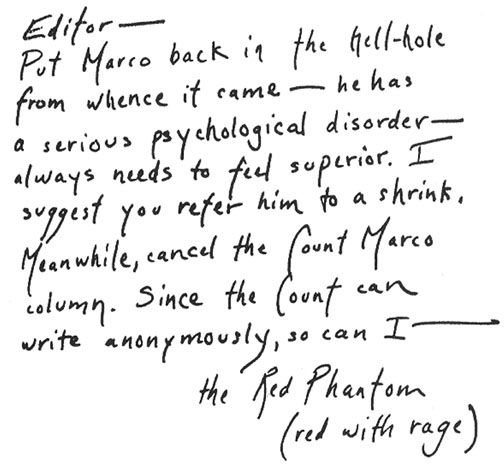 Editor —
Put Marco back in the hell-hole
from whence it came — he has
a serious psychological disorder —
always needs to feel superior. I
suggest you refer him to a shrink.
Meanwhile, cancel the Count Marco
column. Since the Count can
write anonymously, so can I —
the Red Phantom
(red with rage)